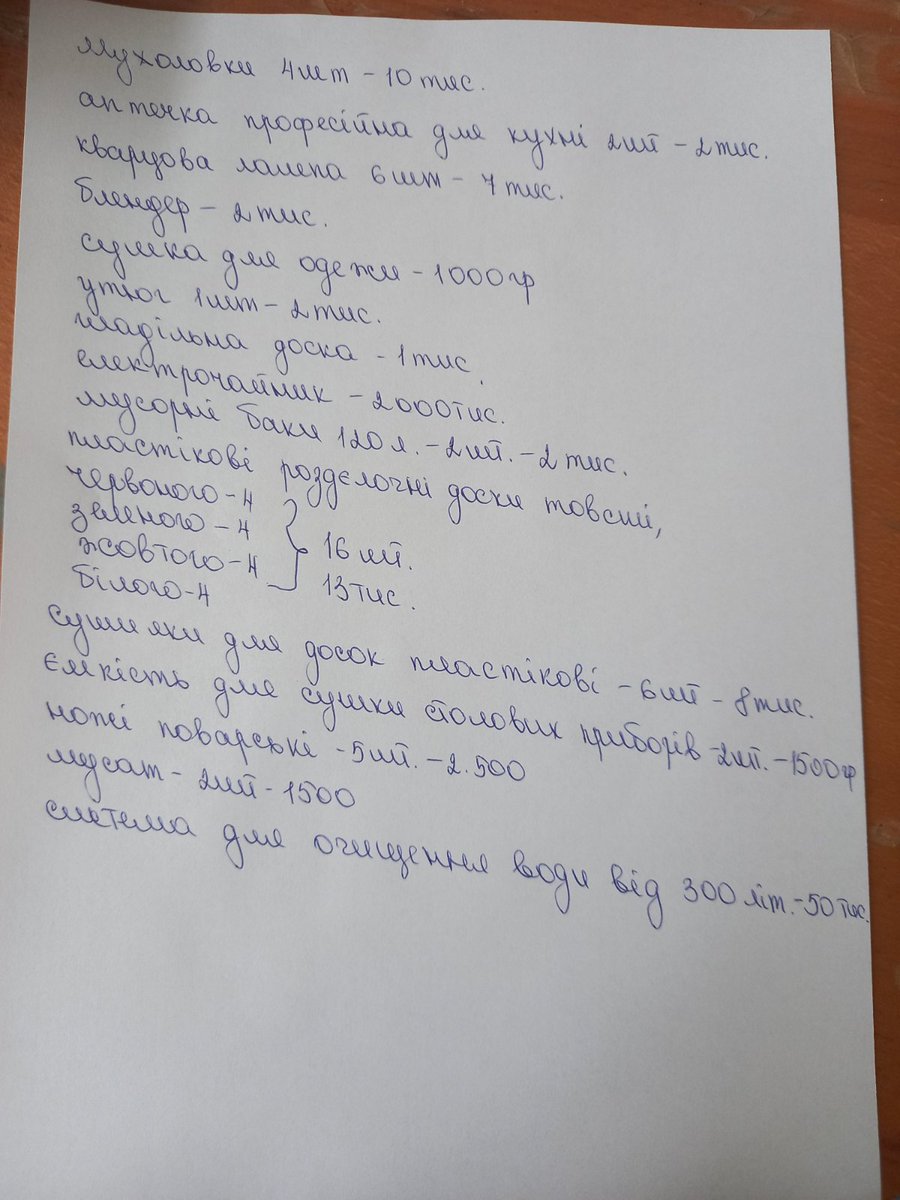 мухоловки 4шт - 10 тис.
аптечка професійна для кухні 2шт - 2 тис.
кварцова лампа 6 шт - 7 тис.
блендер - 2 тис.
сушка для одежи - 1000 гр
утюг 1шт - 2 тис.
гладільна доска - 1 тис.
електрочайник - 2000 тис.
мусорні баки 120 л. - 2шт. - 2 тис.
пластікові розделочні доски товсті,
червоного - 4
зеленого - 4
жовтого - 4
білого - 4
16 шт.
13 тис.
сушилки для досок пластікові - 6 шт - 8 тис.
ємкість для сушки столових приборів - 2шт. - 1500 гр
ножі поварські - 5шт. - 2.500
мусат - 2шт - 1500
система для очищення води від 300 літ. - 50 тис.